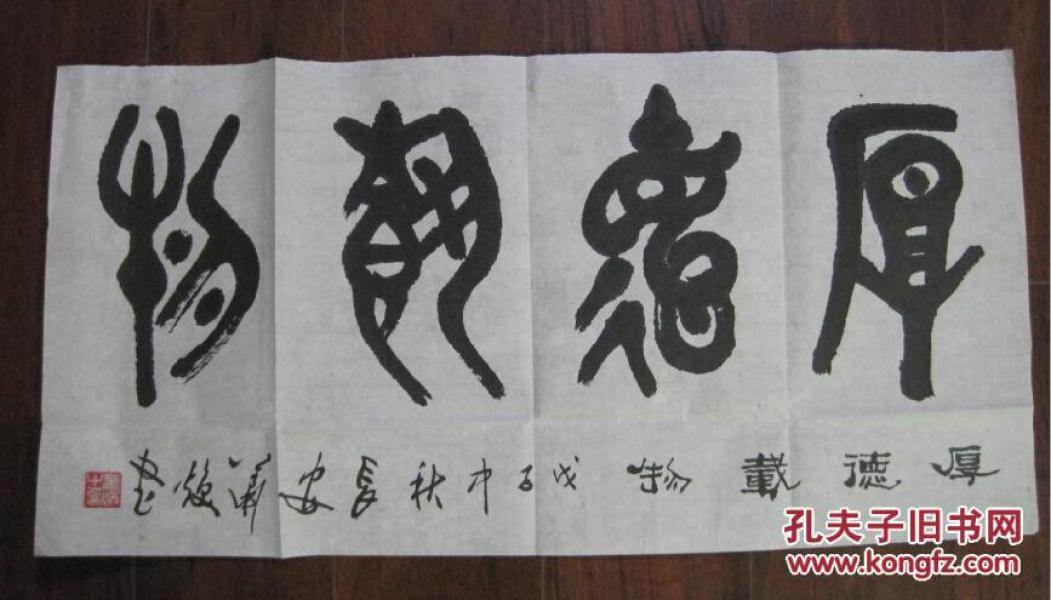 厚德載物
厚德載物 戊子中秋 長安 書
孔夫子旧书网
www.kongfz.com